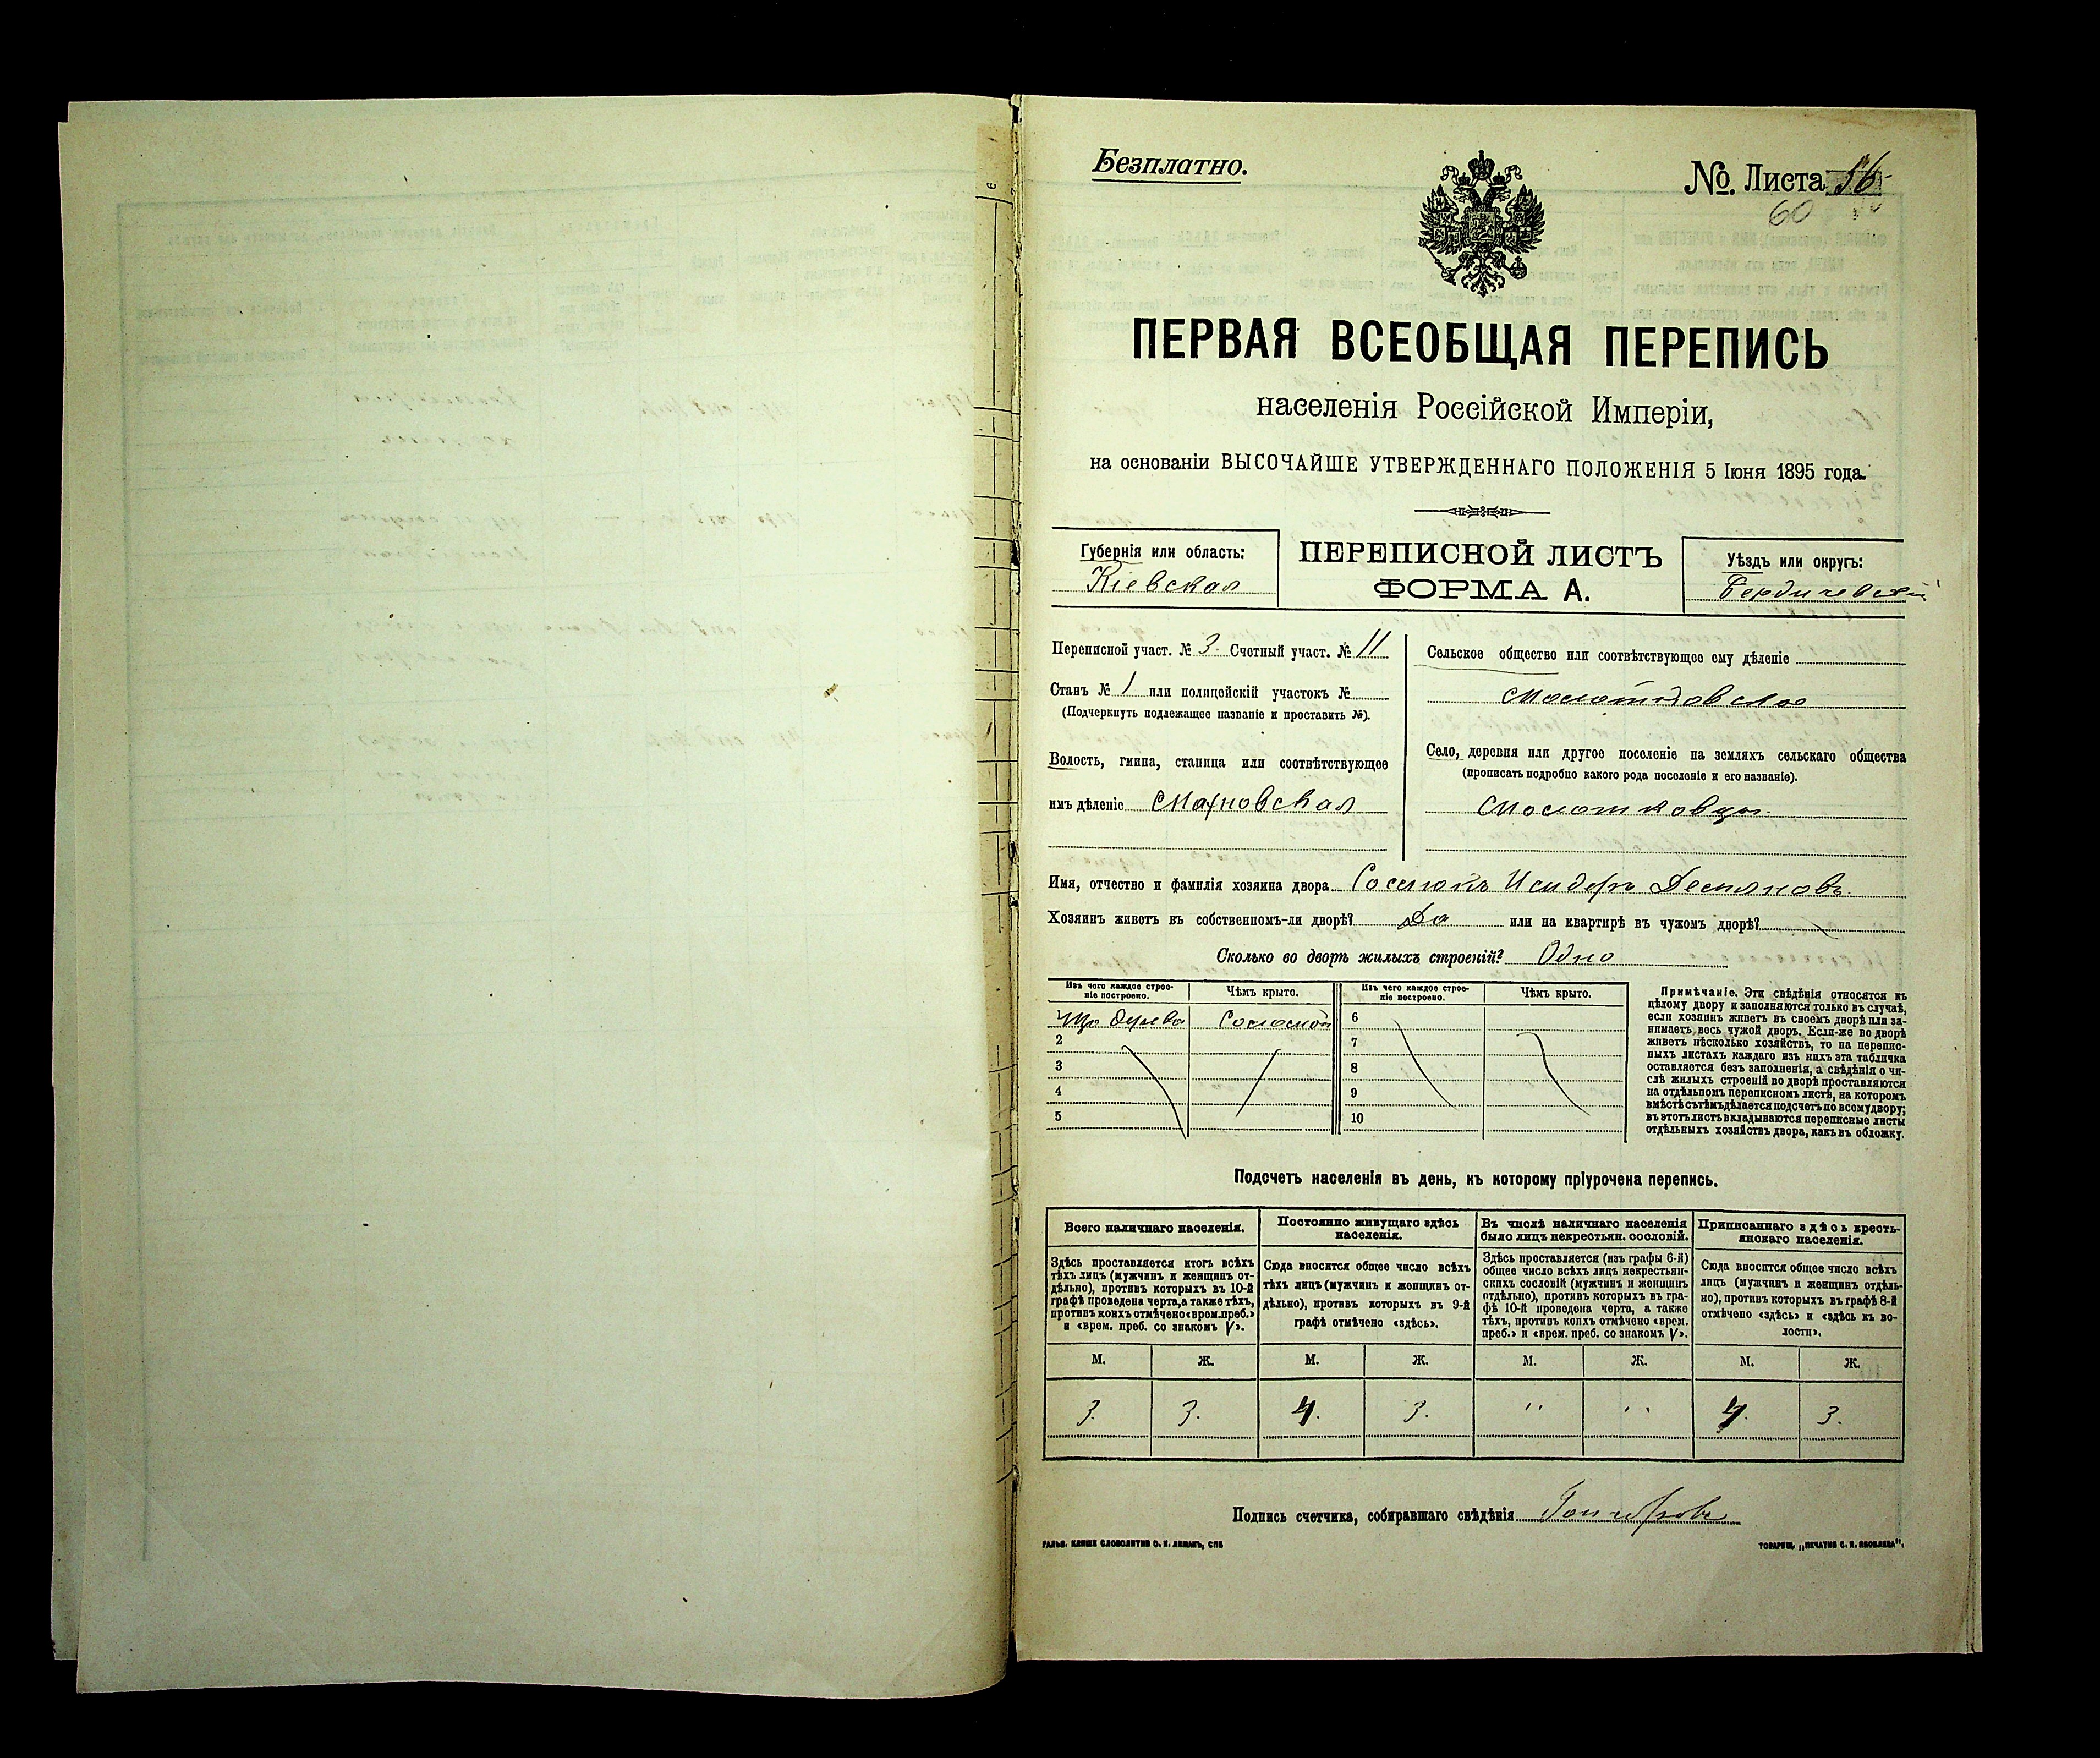 Безплатно.
№. Листа 56
60
ПЕРВАЯ ВСЕОБЩАЯ ПЕРЕПИСЬ
населенія Россійской Имперіи,
на основаніи ВЫСОЧАЙШЕ УТВЕРЖДЕННАГО ПОЛОЖЕНІЯ 5 Іюня 1895 года.
Губернія или область:
Кіевская
ПЕРЕПИСНОЙ ЛИСТЪ
ФОРМА А.
Уѣздъ или округъ:
Бердичевскій
Переписной участ. № 3. Счетный участ. № 11
Станъ № 1 или полицейскій участокъ №
(Подчеркнуть подлежащее названіе и проставить №).
Волость, гмина, станица или соотвѣтствующее
имъ дѣленіе Махновская
Сельское общество или соотвѣтствующее ему дѣленіе
Село, деревня или другое поселеніе на земляхъ сельскаго общества
(прописать подробно какого рода поселеніе и его названіе).
Молотковцы
Имя, отчество и фамилія хозяина двора Исидоръ
Хозяинъ живетъ въ собственномъ-ли дворѣ? Да или на квартирѣ въ чужомъ дворѣ?
Сколько во дворѣ жилыхъ строеній? Одно
Изъ чего каждое строе-
ніе построено.
Чѣмъ крыто.
Изъ чего каждое строе-
ніе построено.
Чѣмъ крыто.
1 Изъ дерева Соломой 6
2 7
3 8
4 9
5 10
Примѣчаніе. Эти свѣдѣнія относятся къ
цѣлому двору и заполняются только въ случаѣ,
если хозяинъ живетъ въ своемъ дворѣ или за-
нимаетъ весь чужой дворъ. Если-же во дворѣ
живетъ нѣсколько хозяйствъ, то на перепис-
ныхъ листахъ каждаго изъ нихъ эта табличка
оставляется безъ заполненія, а свѣдѣнія о чи-
слѣ жилыхъ строеній во дворѣ проставляются
на отдѣльномъ переписномъ листѣ, на которомъ
вмѣстѣ съ тѣмъ дѣлается подсчетъ по всему двору;
въ этотъ листъ вкладываются переписные листы
отдѣльныхъ хозяйствъ двора, какъ въ обложку.
Подсчетъ населенія въ день, къ которому пріурочена перепись.
Всего наличнаго населенія.
Здѣсь проставляется итогъ всѣхъ
тѣхъ лицъ (мужчинъ и женщинъ от-
дѣльно), противъ которыхъ въ 10-й
графѣ проведена черта, а также тѣхъ,
противъ коихъ отмѣчено «врем. преб.»
и «врем. преб. со знакомъ V».
Постоянно живущаго здѣсь
населенія.
Сюда вносится общее число всѣхъ
тѣхъ лицъ (мужчинъ и женщинъ от-
дѣльно), противъ которыхъ въ 9-й
графѣ отмѣчено «здѣсь».
Въ числѣ наличнаго населенія
было лицъ некрестьян. сословій.
Здѣсь проставляется (изъ графы 6-й)
общее число всѣхъ лицъ некрестьян-
скихъ сословій (мужчинъ и женщинъ
отдѣльно), противъ которыхъ въ гра-
фѣ 10-й проведена черта, а также
тѣхъ, противъ коихъ отмѣчено «врем.
преб.» и «врем. преб. со знакомъ V».
Приписаннаго здѣсь кресть-
янскаго населенія.
Сюда вносится общее число всѣхъ
лицъ (мужчинъ и женщинъ отдѣль-
но), противъ которыхъ въ графѣ 8-й
отмѣчено «здѣсь» и «здѣсь къ во-
лости».
М. Ж. М. Ж. М. Ж. М. Ж.
3. 3. 4. 3. " " 4. 3.
Подпись счетчика, собиравшаго свѣдѣнія
ГАЛЬВ. КЛИШЕ СЛОВОЛИТНИ О. И. ЛЕМАНЪ, СПБ
ТОВАРИЩ. „ПЕЧАТНЯ С. П. ЯКОВЛЕВА".